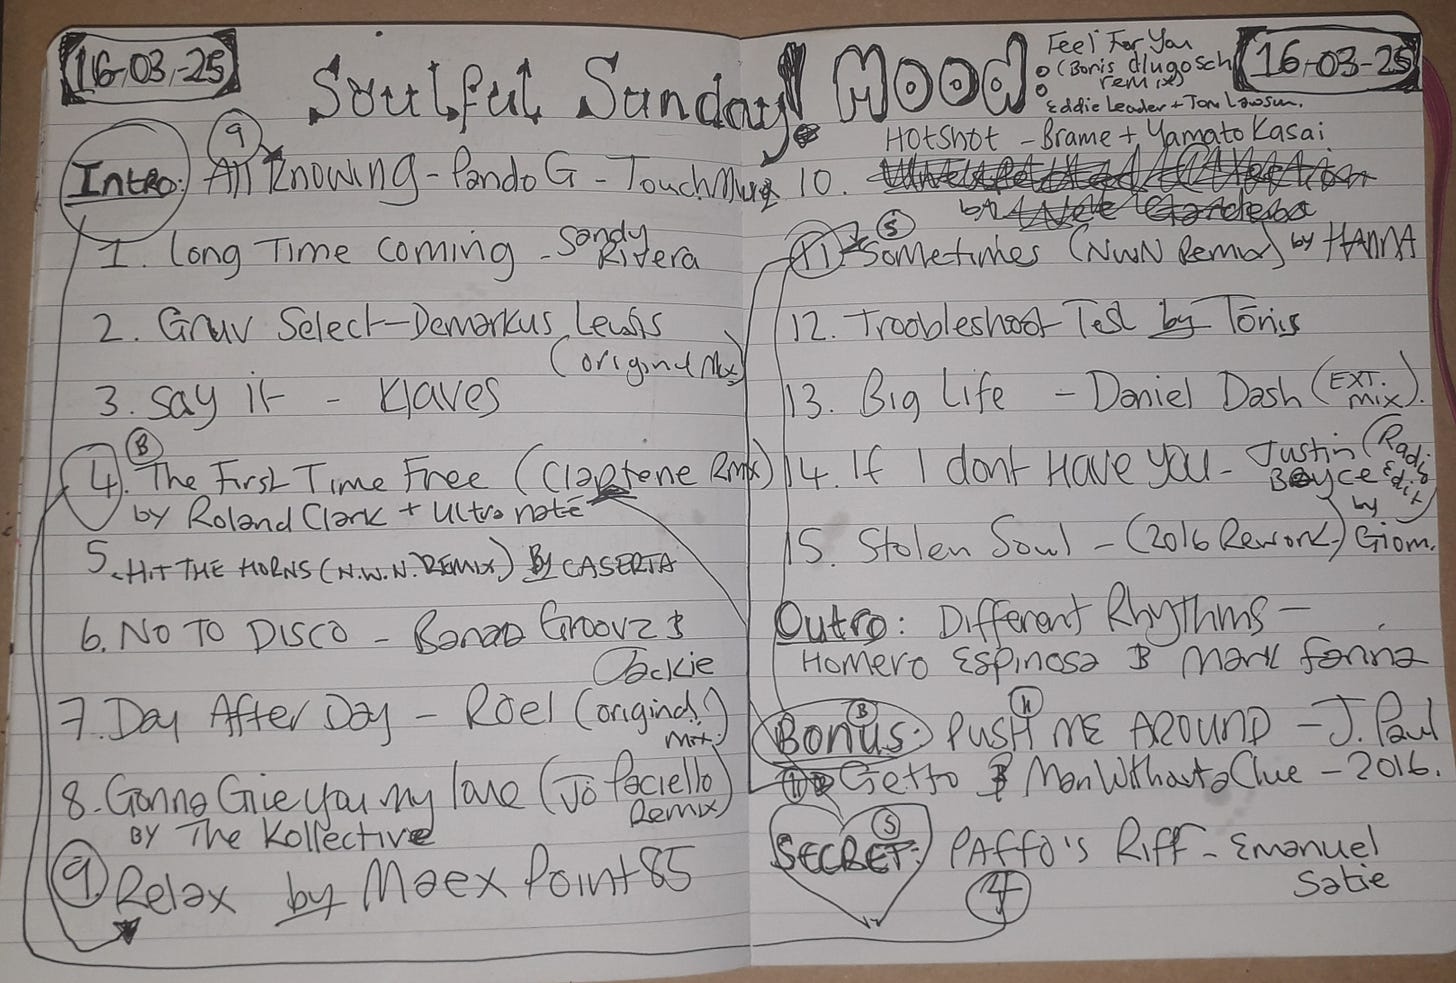 16-03-25
Soulful Sunday!
(9)
Intro: All Knowing - Pando G - TouchMusq
1. Long Time Coming - Sandy Rivera
2. Gruv Select - Demarkus Lewis
(Original Mx)
3. Say it - Klaves
(B)
4. The First Time Free (Claptone Rmx)
by Roland Clark + Ultra naté
5. HIT THE HORNS (N.W.N. REMIX) By CASERTA
6. NO TO DISCO - Banao Groovz &
Jackie
7. Day After Day - Röel (original
mix.)
8. Gonna Give you my love (Jo Paciello
Remix)
BY The Kollective
9. Relax by Maex Point85
MOOD
Feel For You
(Boris dlugosch
remix)
Eddie Leader + Tom Lawson.
16-03-25
HOTSHOT - Brame + Yamato Kasai
10.
by
(S)
11. Sometimes (NWN Remix) by HANNA
12. Troobleshoot Test by Tönis
13. Big Life - Daniel Dash (EXT.
mix).
14. If I dont Have you - Justin (Radio
Boyce Edit)
by
15. Stolen Soul - (2016 Rework) Giom.
Outro: Different Rhythms -
Homero Espinosa & Mark Fanna
(B) (11)
Bonus: PUSH ME AROUND - J. Paul
Getto & ManWithoutaClue - 2016.
(S)
SECRET: PAFFO'S Riff - Emanuel
Satie
(4)